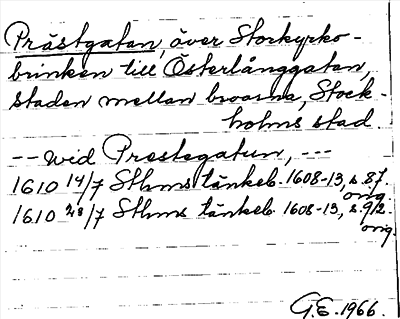 Prästgatan, över Storkyrko-
brinken till Österlånggatan,
staden mellan broarna, Stock-
holms stad.
-- wid Prestegatun, ---
1610 14/7 Sthms tänkeb. 1608-13, s. 87.
orig.
1610 28/7 Sthms tänkeb. 1608-13, s. 92.
orig.
G.E. 1966.